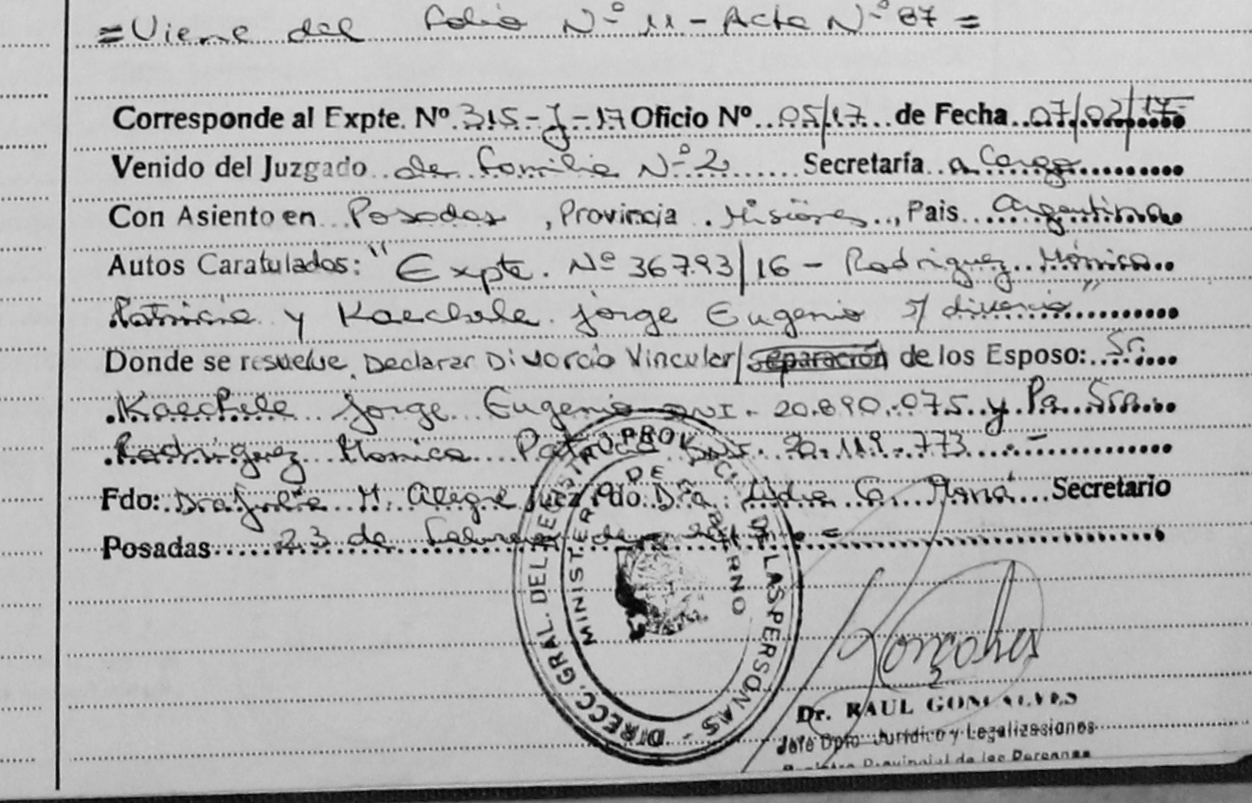 =Viene del folio Nº 11-Acta Nº 87=
Corresponde al Expte. Nº 315-J-17 Oficio Nº 05/17 de Fecha 07/02/17-
Venido del Juzgado de Familia Nº 2 Secretaría a Cargo
Con Asiento en Posadas, Provincia Misiones, Pais Argentina
Autos Caratulados: "Expte. Nº 36793/16 - Rodriguez Mónica
Patricia y Kaechele Jorge Eugenio s/ divorcio"
Donde se resuelve, Declarar Divorcio Vincular/separación de los Esposo: Sr.
Kaechele Jorge Eugenio DNI. 20.890.075 y la Sra.
Rodriguez Monica Patricia DNI. 20.119.773.-
Fdo: Dra M. Alegre Juez Fdo Dra. Lidia Secretario
Posadas 23 de Febrero de =
DIRECC. GRAL. DEL REGISTRO PROVINCIAL DE LAS PERSONAS -
MINISTERIO DE GOBIERNO
Dr. RAUL GONCALVES
Jefe Dpto Jurídico y Legalizaciones
Registro Provincial de las Personas